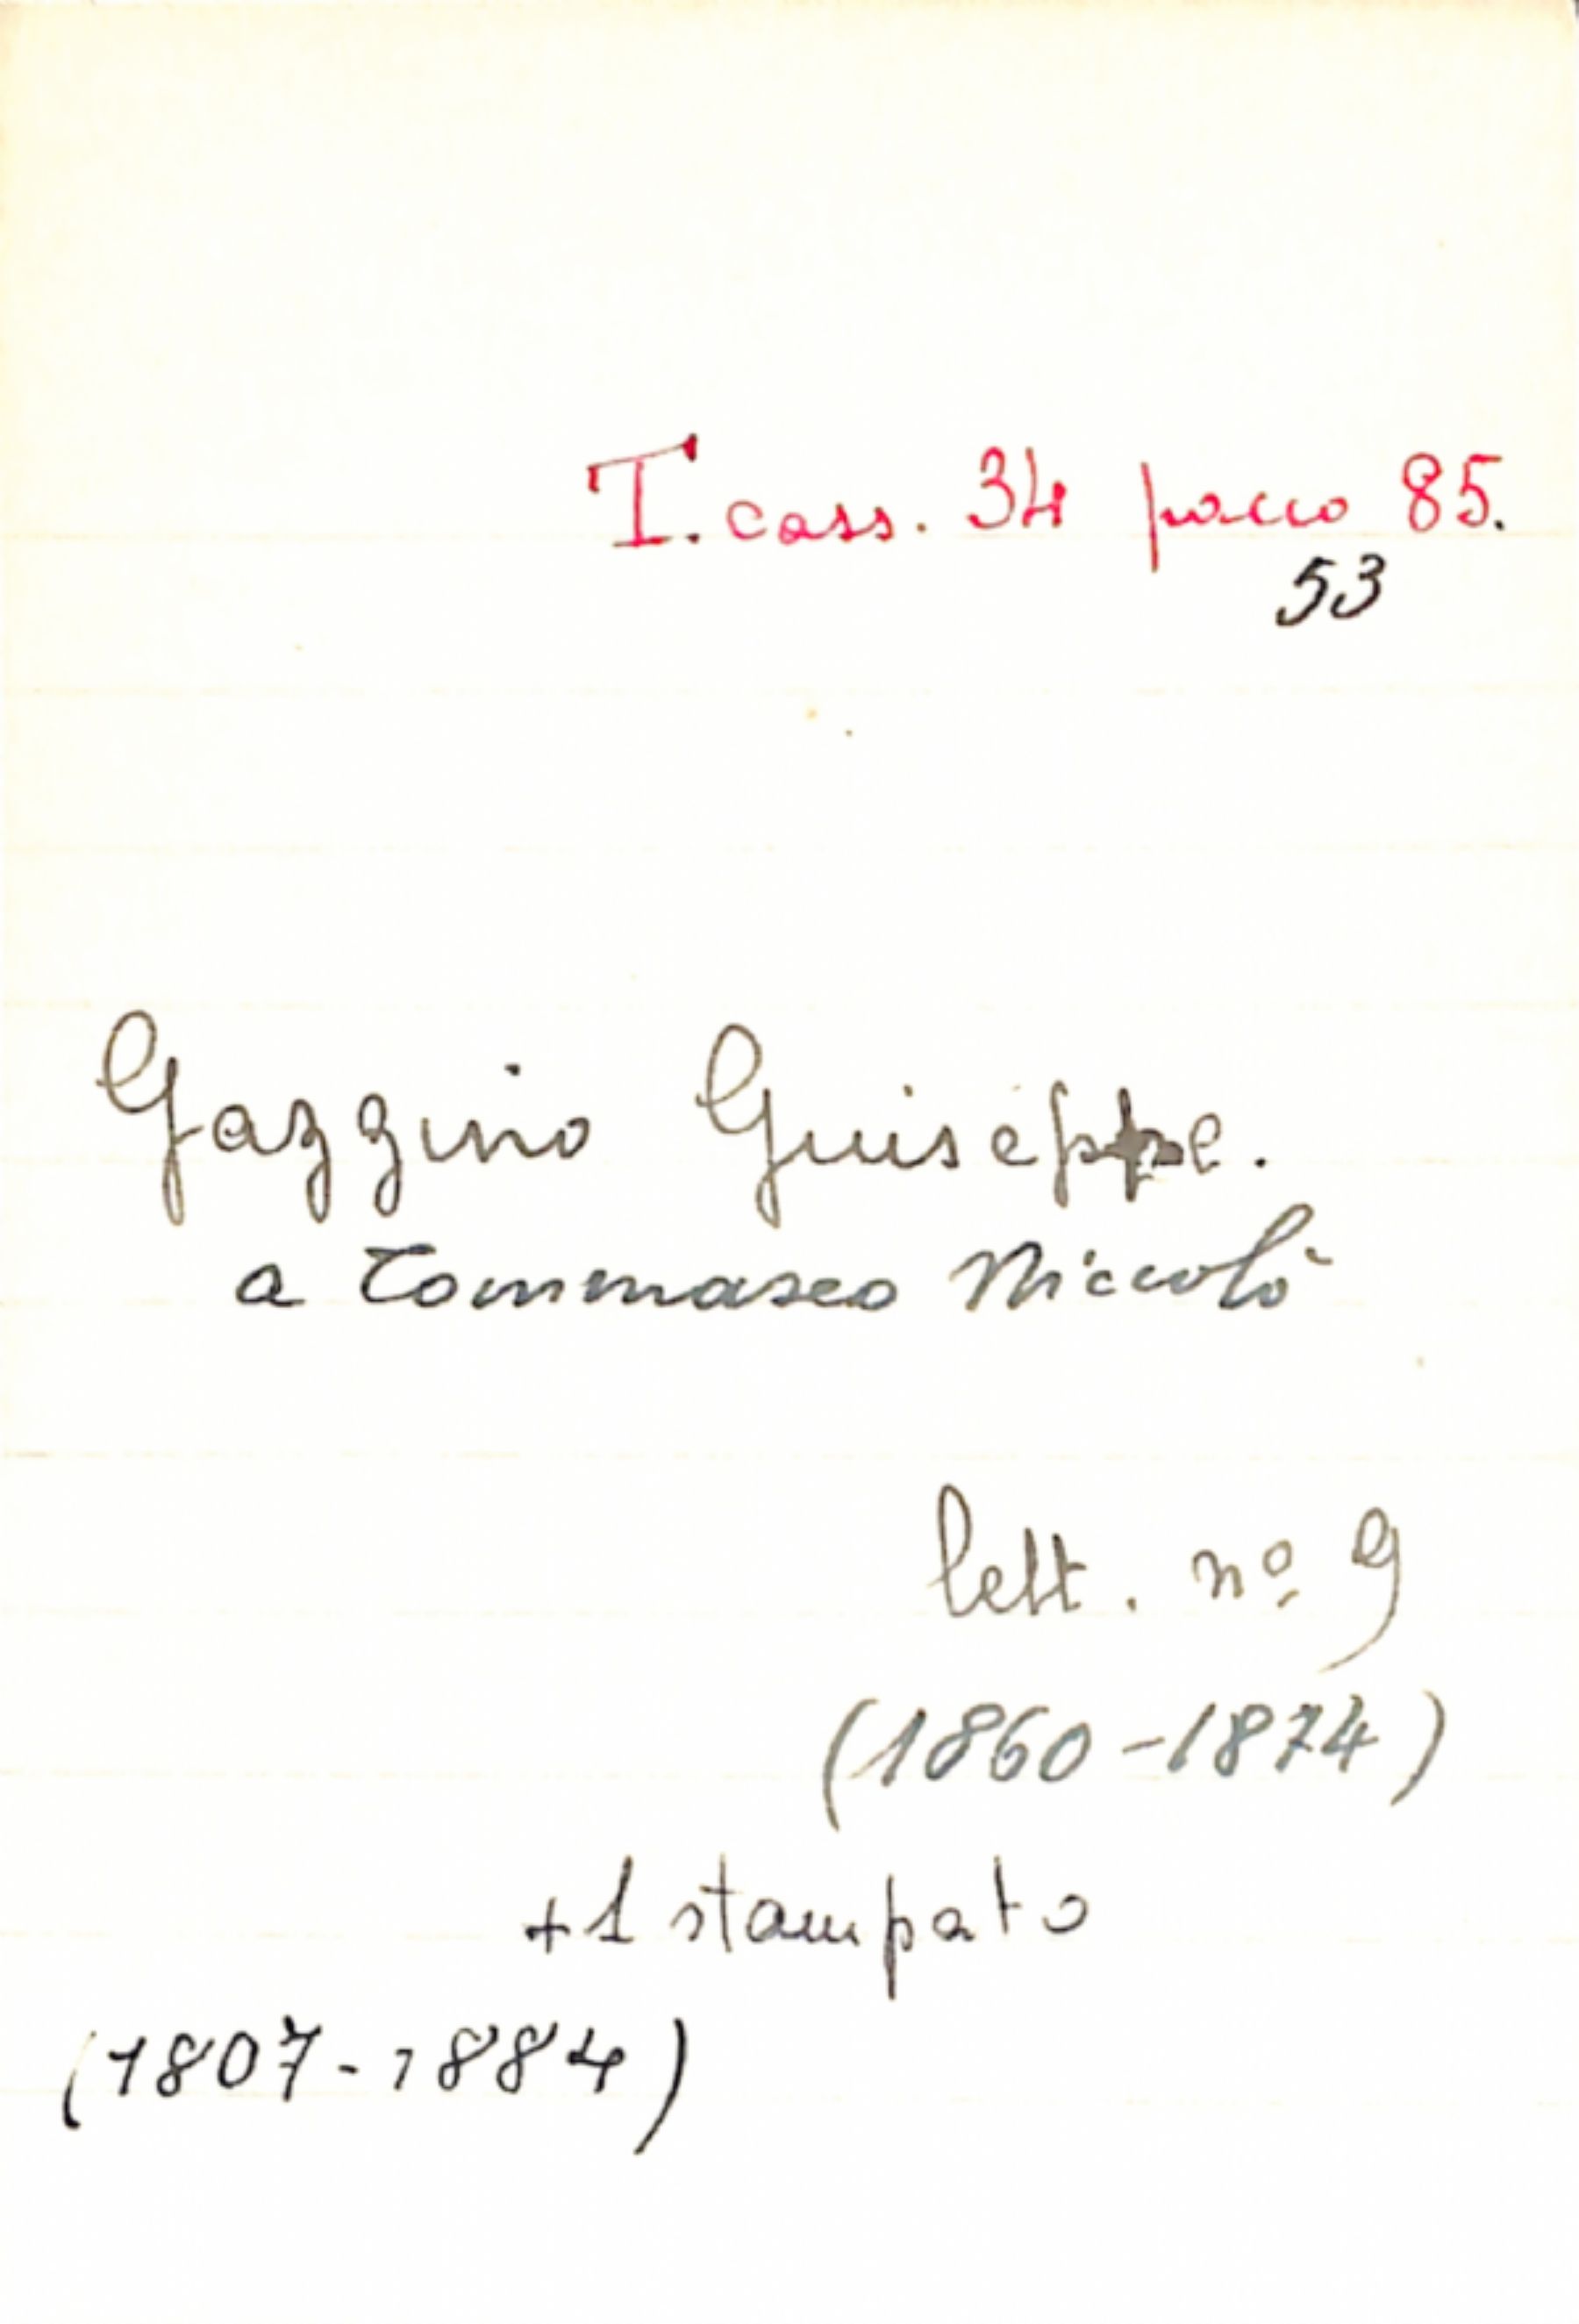 T. cass. 34 pacco 85.
53
Gazzino Giuseppe.
a Tommaseo Niccolò
lett. nº 9
(1860-1874)
+1 stampato
(1807-1884)